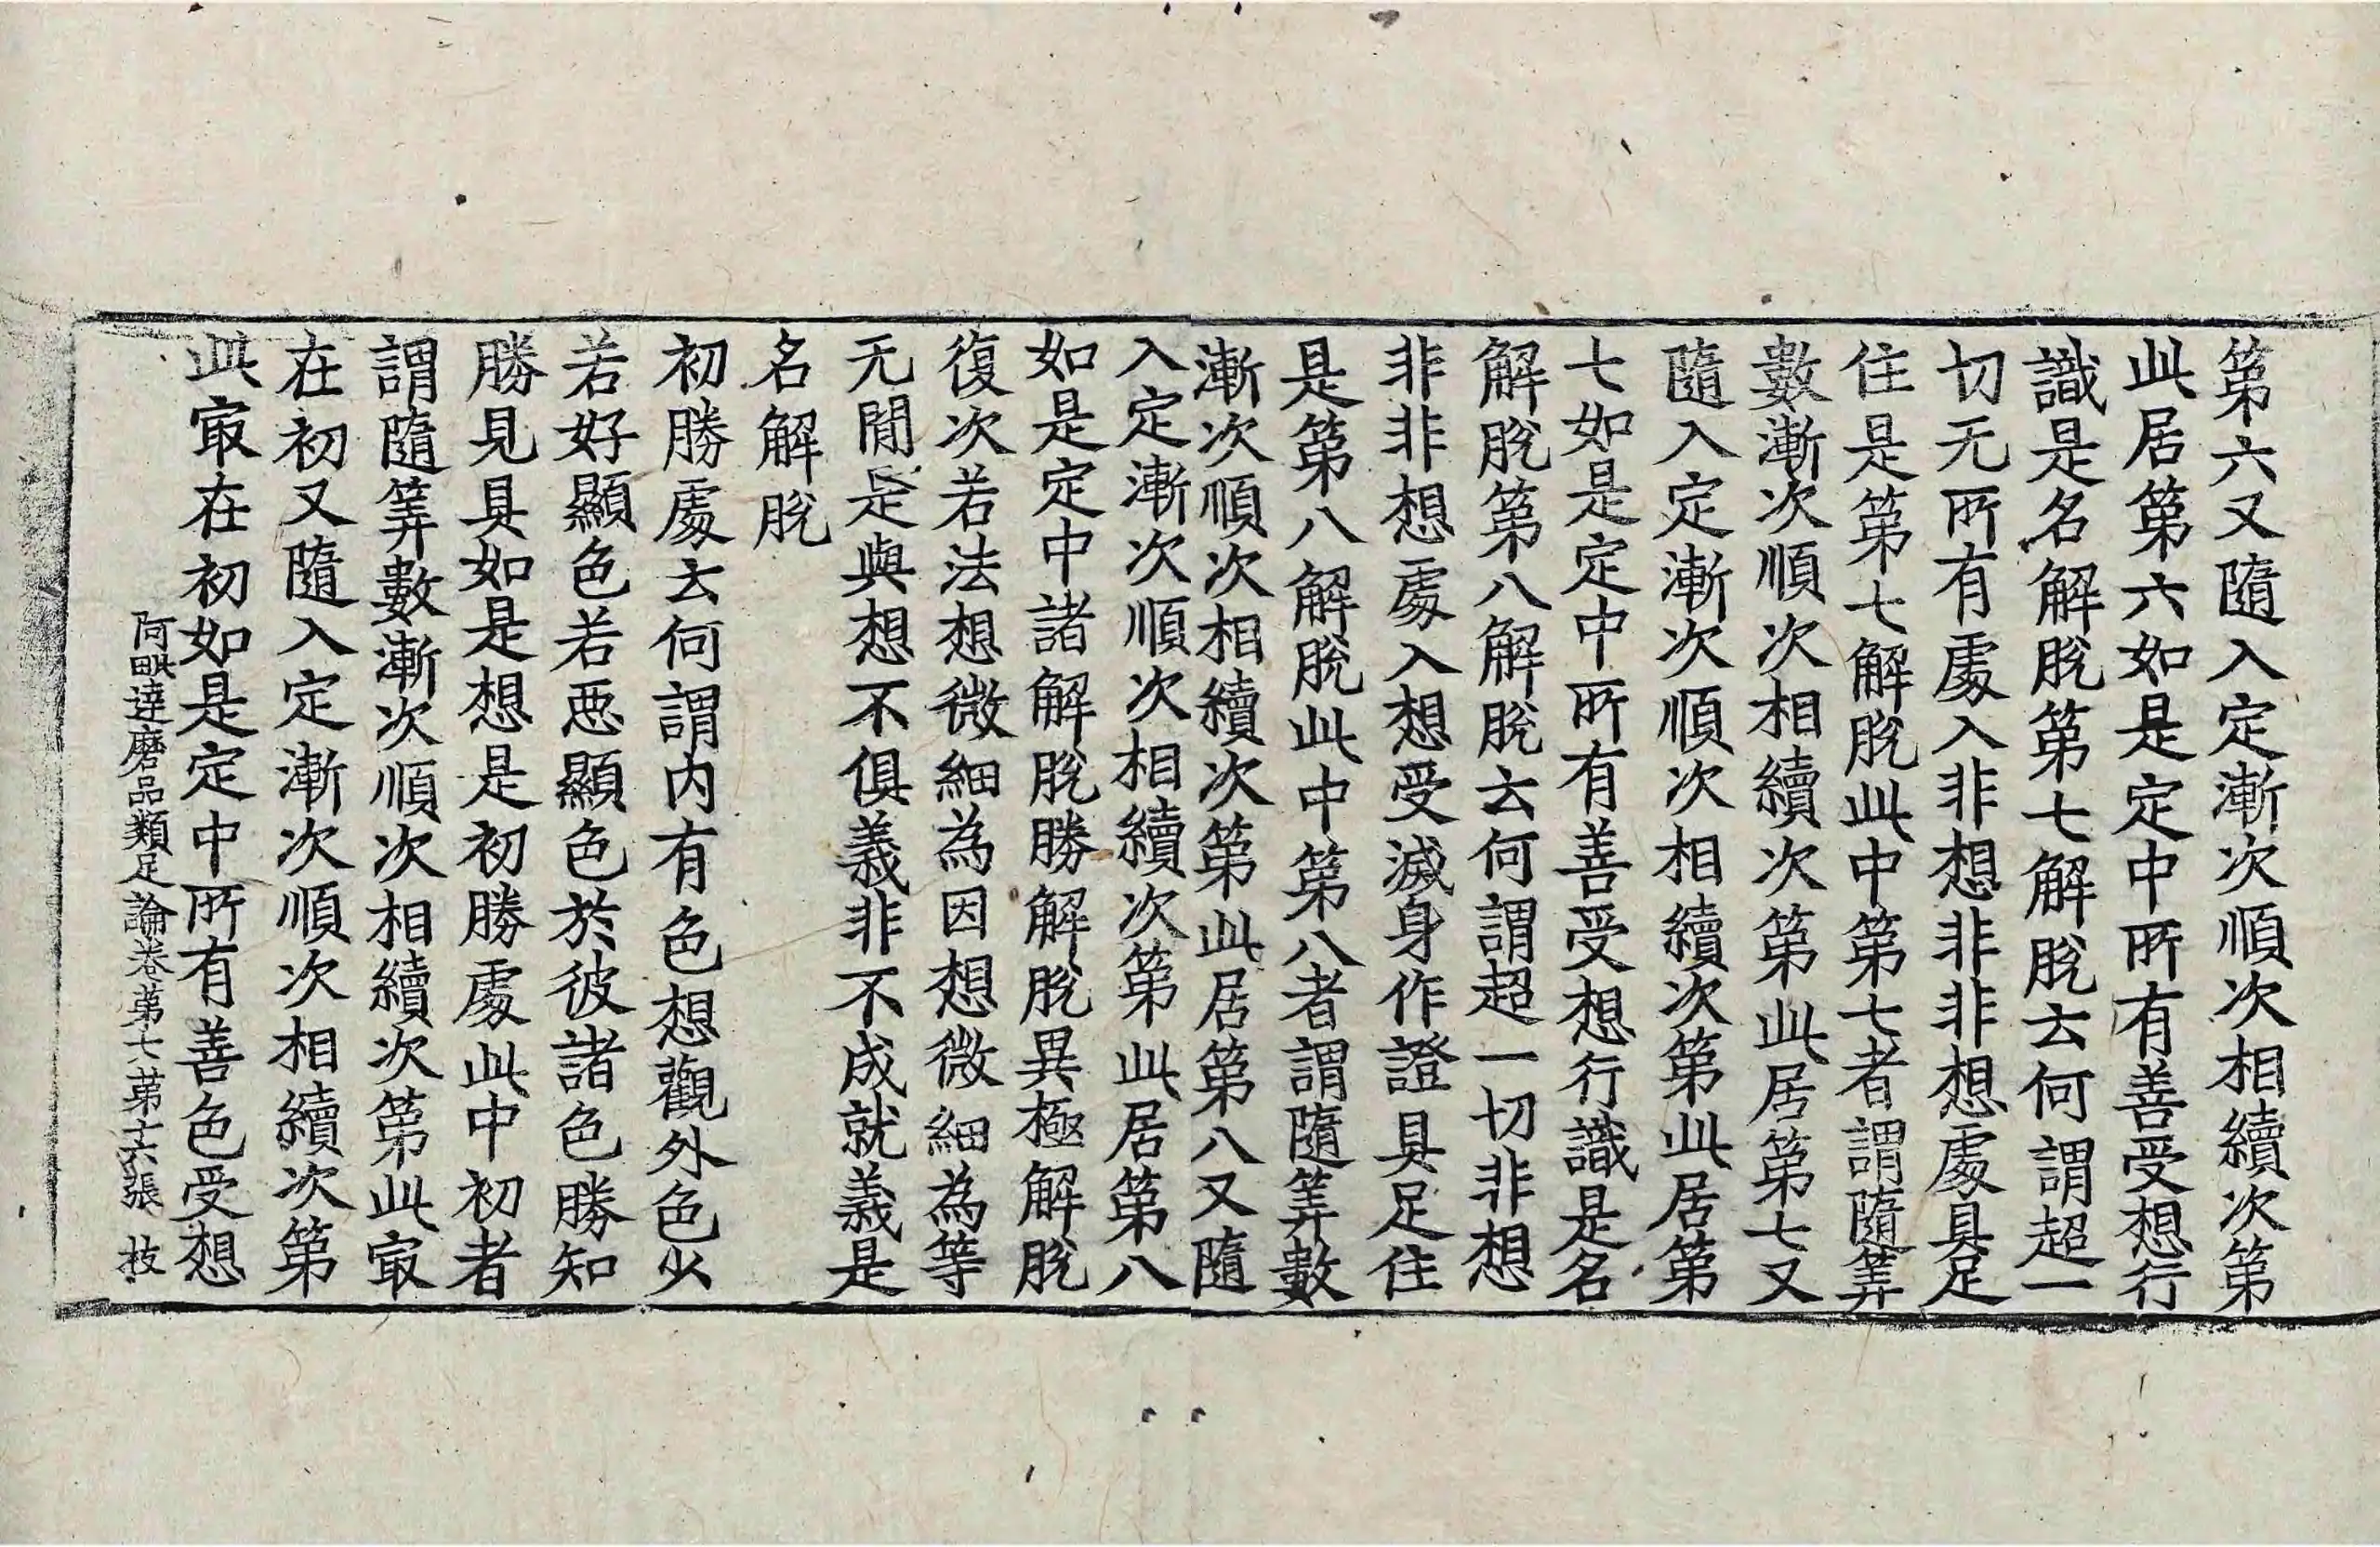 第六又隨入定漸次順次相續次第
此居第六如是定中所有善受想行
識是名解脫第七解脫云何謂超一
切无所有處入非想非非想處具足
住是第七解脫此中第七者謂隨筭
數漸次順次相續次第此居第七又
隨入定漸次順次相續次第此居第
七如是定中所有善受想行識是名
解脫第八解脫云何謂超一切非想
非非想處入想受滅身作證具足住
是第八解脫此中第八者謂隨筭數
漸次順次相續次第此居第八又隨
入定漸次順次相續次第此居第八
如是定中諸解脫勝解脫異極解脫
復次若法想微細為因想微細為等
无閒是與想不俱義非不成就義是
名解脫
初勝處云何謂内有色想觀外色少
若好顯色若惡顯色於彼諸色勝知
勝見具如是想是初勝處此中初者
謂隨筭數漸次順次相續次第此㝡
在初又隨入定漸次順次相續次第
此㝡在初如是定中所有善色受想
阿毗達磨品類足論卷第十八第十六張 技